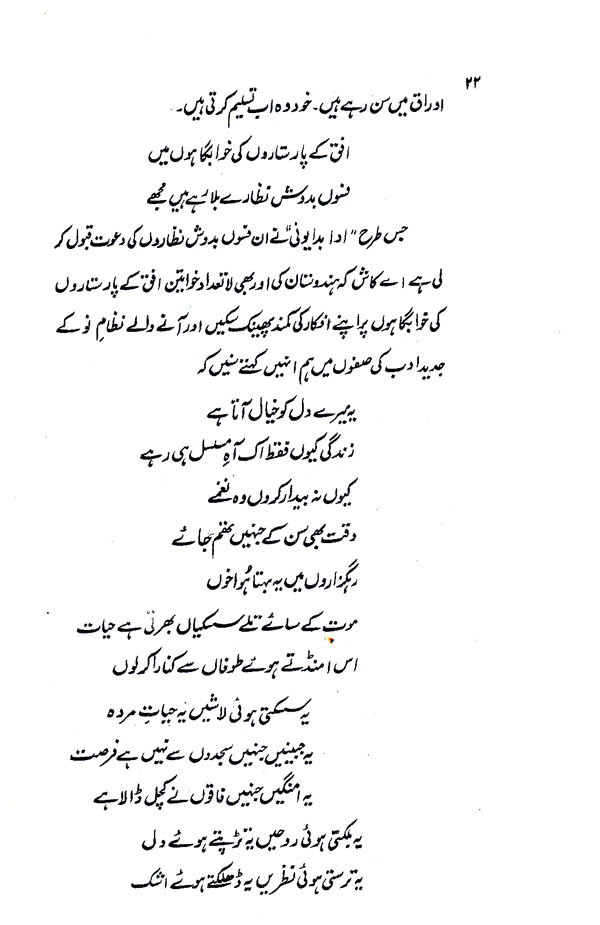 ۲۲
اوراق میں سن رہے ہیں۔ خود وہ اب تسلیم کرتی ہیں۔
افق کے پار ستاروں کی خوابگاہوں میں
فسوں بدوش نظارے بلا رہے ہیں مجھے
جس طرح "ادا بدایونی" نے ان فسوں بدوش نظاروں کی دعوت قبول کر
لی ہے اے کاش کہ ہندوستان کی اور بھی لاتعداد خواتین افق کے پار ستاروں
کی خوابگاہوں پر اپنے افکار کی کمند پھینک سکیں اور آنے والے نظامِ نو کے
جدید ادب کی صفوں میں ہم انہیں کہتے سنیں کہ
یہ میرے دل کو خیال آتا ہے
زندگی کیوں فقط اک آہِ مسلسل ہی رہے
کیوں نہ بیدار کروں وہ نغمے
وقت بھی سن کے جنہیں تھم جائے
ریگزاروں میں یہ بہتا ہُوا خوں
موت کے سائے تلے سسکیاں بھرتی ہے حیات
اس امنڈتے ہوئے طوفاں سے کنارا کر لوں
یہ سسکتی ہوئی لاشیں یہ حیاتِ مردہ
یہ جبینیں جنہیں سجدوں سے نہیں ہے فرصت
یہ امنگیں جنہیں فاقوں نے کچل ڈالا ہے
یہ بلکتی ہوئی روحیں یہ تڑپتے ہوئے دل
یہ ترستی ہوئی نظریں یہ ڈھلکتے ہوئے اشک